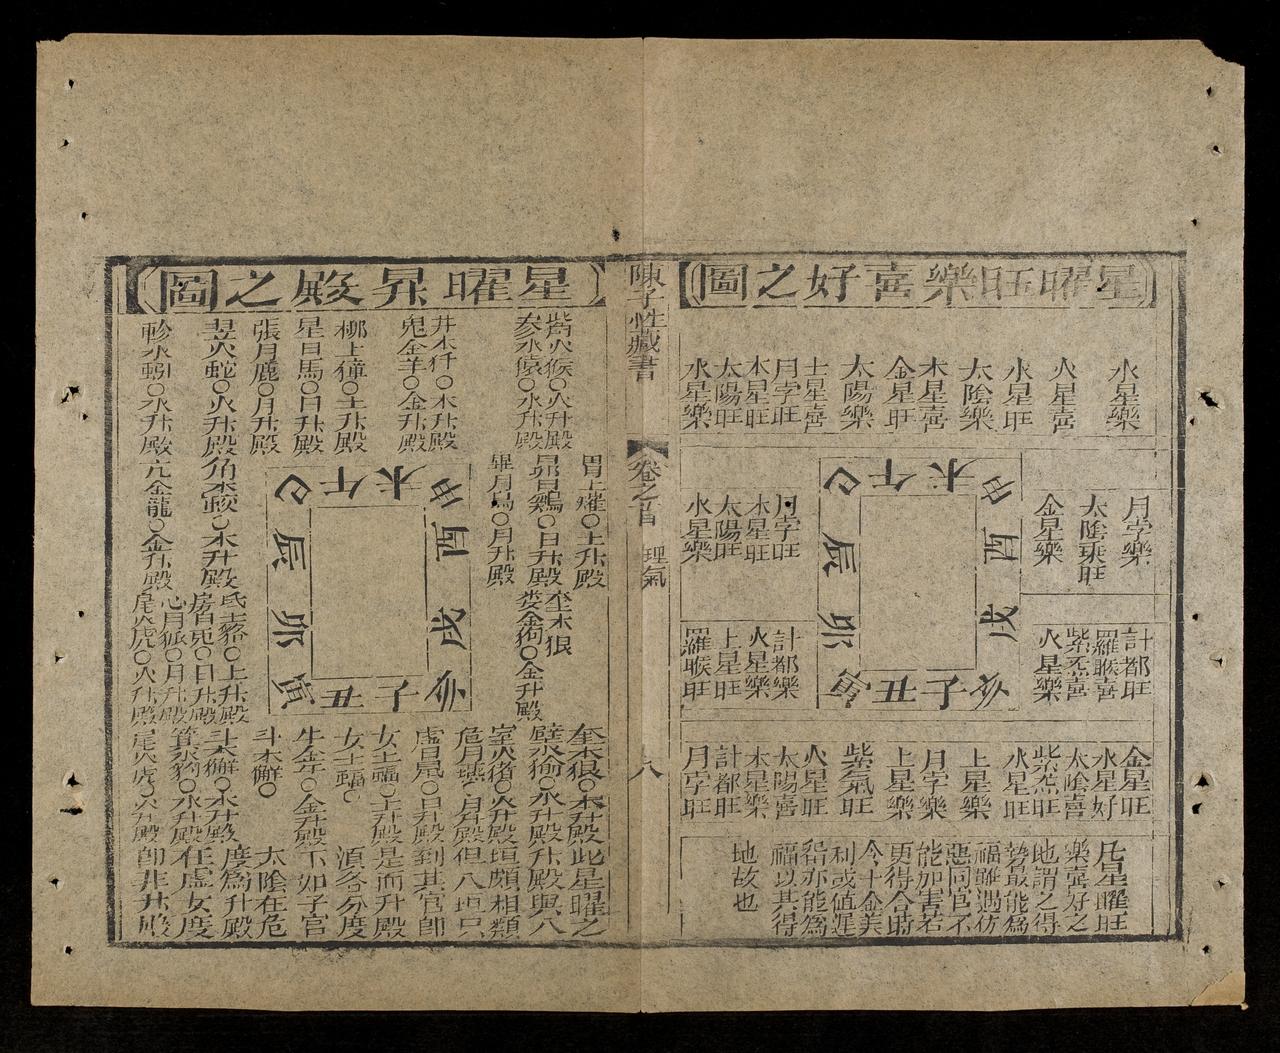 星曜旺樂喜好之圖
水星樂
火星喜
水星旺
太陰樂
木星喜
金星旺
太陽樂
土星喜
月孛旺
木星旺
太陽旺
水星樂
月孛樂
太陰乘旺
金星樂
月孛旺
木星旺
太陽旺
水星樂
巳午未申
辰酉
卯戌
寅丑子亥
計都旺
羅睺喜
紫炁喜
火星樂
計都樂
火星樂
土星旺
羅睺旺
金星旺
水星好
太陰喜
紫炁旺
水星旺
土星樂
月孛樂
土星樂
紫氣旺
火星旺
太陽喜
木星樂
計都旺
月孛旺
凡星曜旺
樂喜好之
地謂之得
勢最能為
福雖遇彷
惡同官不
能加害若
更得令時
今十全美
利或値遲
畱亦能為
福以其得
地故也
陳子性藏書
卷之首
理氣
八
星曜昇殿之圖
觜火猴○火升殿
参水猿○水升殿
井木犴○木升殿
鬼金羊○金升殿
柳土獐○土升殿
星日馬○日升殿
張月鹿○月升殿
翌火蛇○火升殿
軫水蚓○水升殿
胃土㻿○土升殿
昴日鷄○日升殿
畢月烏○月升殿
巳午未申
辰酉
卯戌
寅丑子亥
角木蛟○木升殿
亢金龍○金升殿
奎木狼
娄金狗○金升殿
氐土貉○土升殿
房日兎○日升殿
心月狐○月升殿
尾火虎○火升殿
奎木狼○木升殿
壁水㺄○水升殿
室火猪○火升殿
危月燕○月升殿
虛日鼠○日升殿
女土蝠○土升殿
女土蝠○
牛金牛○金升殿
斗木獬○
斗木獬○木升殿
箕水豹○水升殿
尾火虎○火升殿
此星曜之
升殿與八
垣頗相類
但八垣只
到其官卽
是而升殿
湏各分度
下如子官
太陰在危
度為升殿
在虛女度
卽非升殿